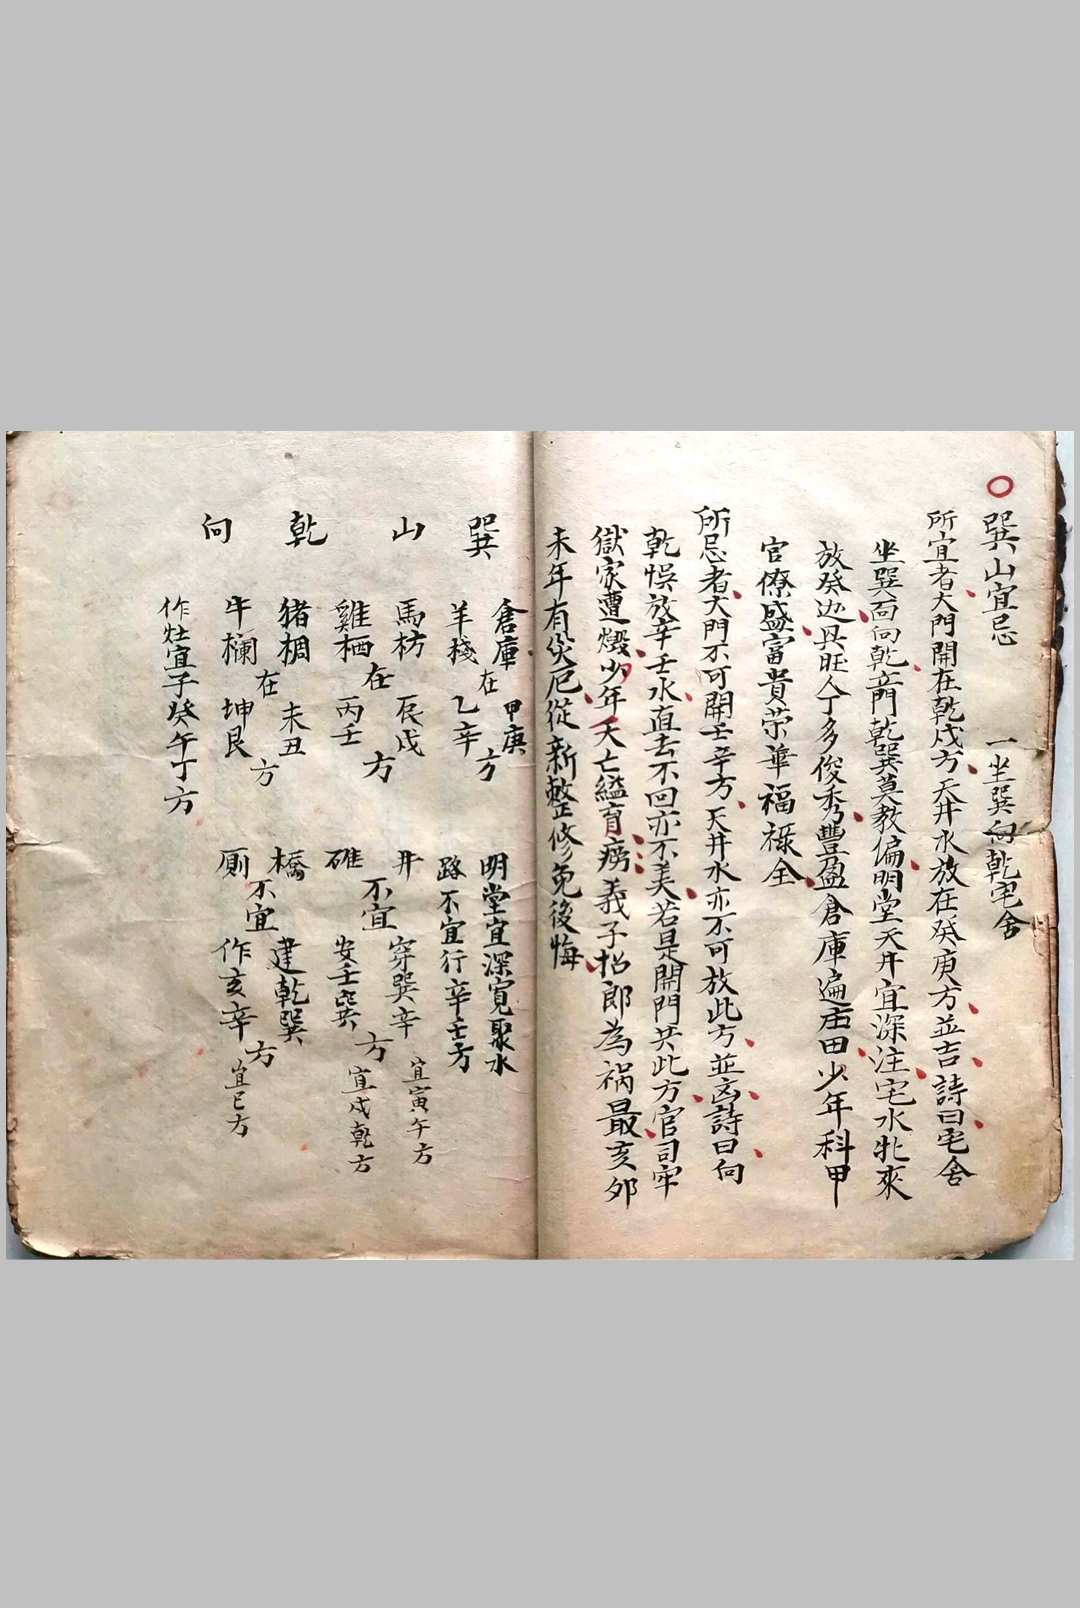 巽山宜忌　一坐巽向乾宅舍
所宜者大門開在乾戍方天井水放在癸庚方並吉詩曰宅舍
坐巽面向乾音門乾巽莫教偏明堂天井宜深注宅水北來
放癸边具旺人丁多俊秀豐盈倉庫遍庄田少年科甲
官僚盛富貴荣華福祿全
所忌者大門不可開壬辛方天井水亦不可放此方並凶詩曰向
乾悞放辛壬水直去不回亦不美若是開門共此方官司牢
獄家遭燬少年夭亡縊育癆義子招郎為祸最亥夘
未年有災厄從新整修免後悔
巽山乾向
倉庫
羊棧
在
甲庚
乙辛
方
馬枋
雞栖
在
辰戍
丙壬
方
猪椆
牛欄
在
未丑
坤艮
方
作灶宜子癸午丁方
明堂宜深寬聚水
路不宜行辛壬方
井
碓
不宜
穿巽辛
安壬巽
方
宜寅午方
宜戍乾方
橋
厠
不宜
建乾巽
作亥辛
方
宜巳方